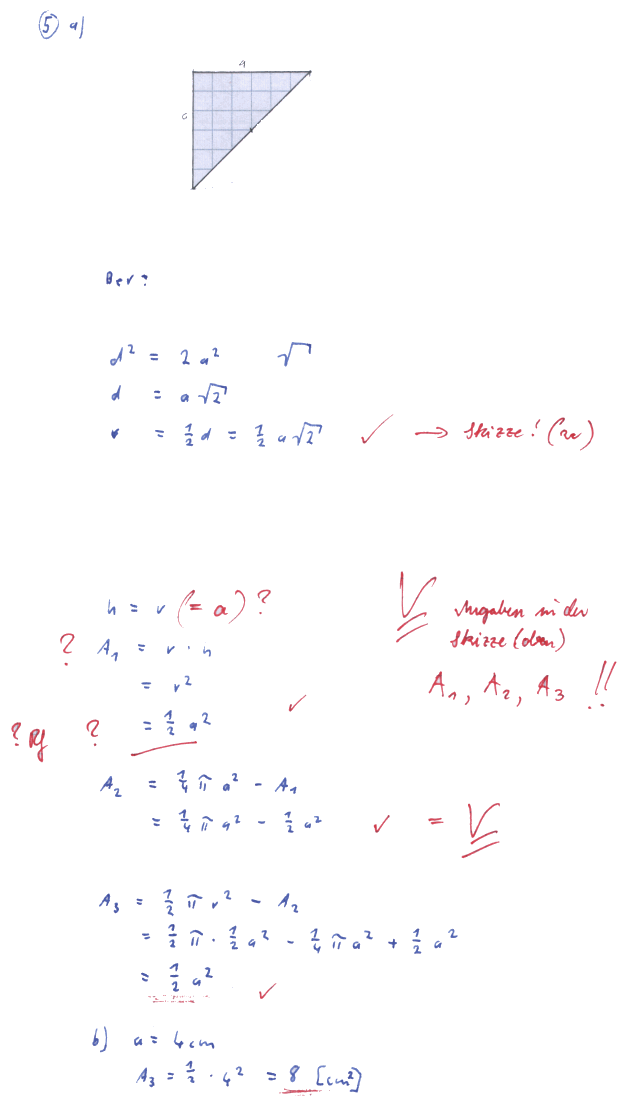 ⑤ a)
a
a
Bev?
d² = 2 a² √
d = a √2
r = 1/2 d = 1/2 a √2 ✓ → Skizze!
h = r (= a) ?
Angaben in der
Skizze (oben)
? A₁ = r · h
= r²
A₁, A₂, A₃ !!
? ? = 1/2 a² ✓
A₂ = 1/4 π a² - A₁
= 1/4 π a² - 1/2 a² ✓ = V
A₃ = 1/2 π r² - A₂
= 1/2 π · 1/2 a² - 1/4 π a² + 1/2 a²
= 1/2 a² ✓
b) a = 4 cm
A₃ = 1/2 · 4² = 8 [cm²]